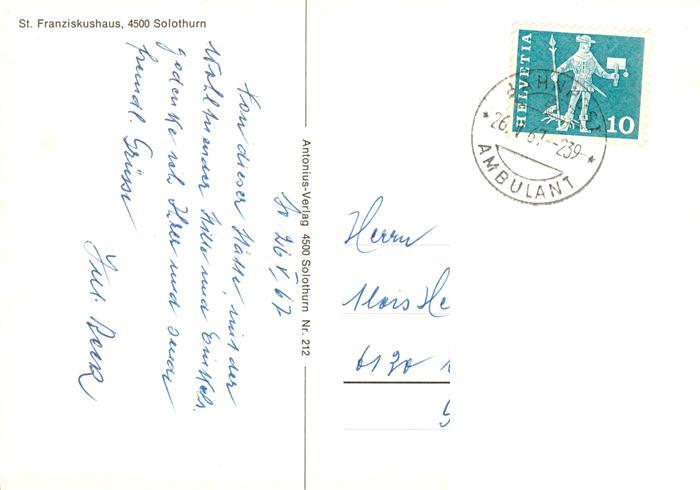 St. Franziskushaus, 4500 Solothurn
So 26.V.67
Von dieser Stätte, mit der
Wohltuender Stille und Einkehr.
gedenke ich Ihrer und sende
freundl. Grüsse
Antonius-Verlag 4500 Solothurn Nr. 212
HELVETIA
10
26. V 67.-239
AMBULANT
Herrn
Alois He
6130